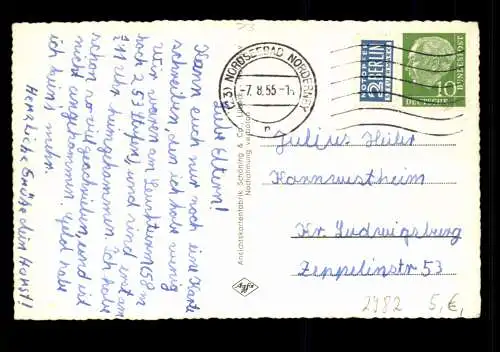 Liebe Eltern!
Kann euch nur noch eine Karte
schreiben, den ich habe wenig
Wir waren am Leuchtturm 58 m
hoch 253 Stufen und sind erst am
Uhr heimgekommen. Ich habe
schon so viel geschrieben und ist
nicht angekommen. Geld habe
ich kein mehr.
Herzliche Grüße dein HORST!
Ansichtskartenfabrik Schöning & Co.
Nachahmung verboten
Agfa
(23) NORDSEEBAD NORDERNEY
-7.8.55-1
NOTOPFER
2 BERLIN
STEUERMARKE
10
DEUTSCHE
BUNDESPOST
Julius Heiler
Kornwestheim
Kr. Ludwigsburg
Zeppelinstr 53
2982 5,€,